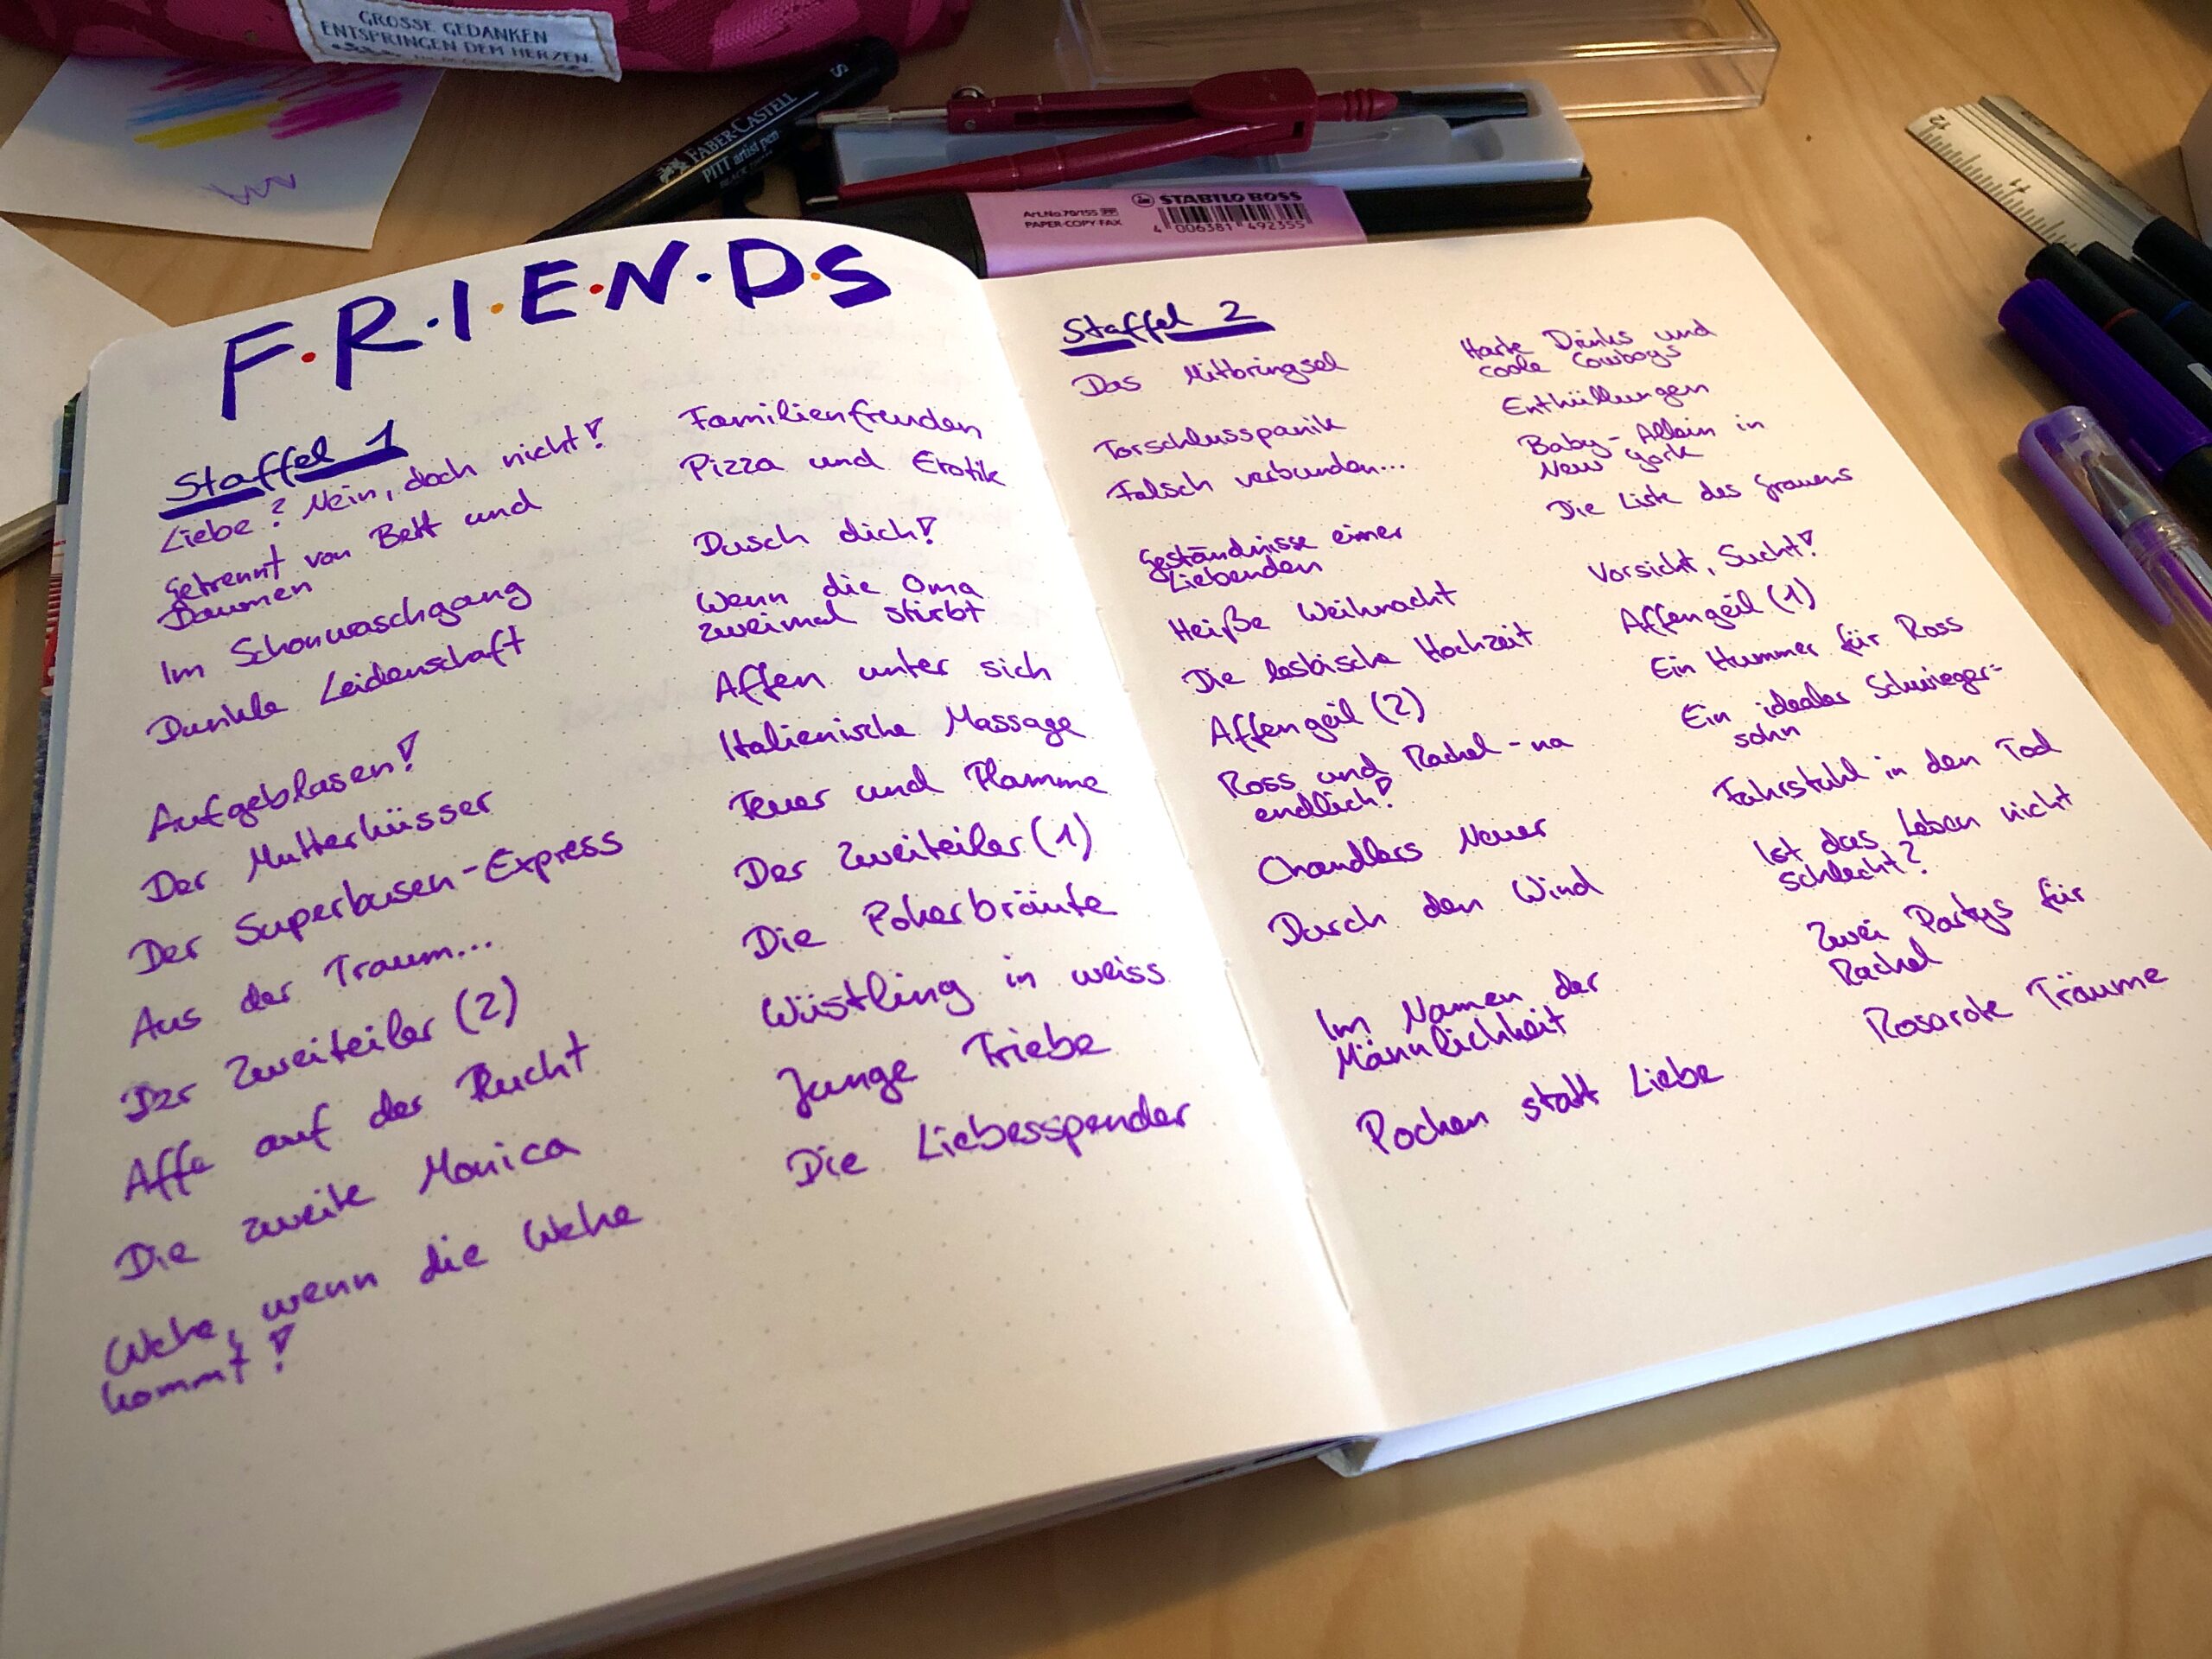 GROSSE GEDANKEN
ENTSPRINGEN DEM HERZEN.
S
FABER-CASTELL
PITT artist pen
Art.No.70/155 PP
PAPER·COPY·FAX
STABILO BOSS
4 006381 492355
12
11
F·R·I·E·N·D·S
Staffel 1
Liebe? Nein, doch nicht!
Getrennt von Bett und
Daumen
Im Schonwaschgang
Dunkle Leidenschaft
Aufgeblasen!
Der Mutterküsser
Der Superbusen-Express
Aus der Traum...
Der Zweiteiler (2)
Affe auf der Flucht
Die zweite Monica
Wehe, wenn die Wehe
kommt!
Familienfreuden
Pizza und Erotik
Dusch dich!
Wenn die Oma
zweimal stirbt
Affen unter sich
Italienische Massage
Feuer und Flamme
Der Zweiteiler (1)
Die Pokerbräute
Wüstling in weiss
Junge Triebe
Die Liebesspender
Staffel 2
Das Mitbringsel
Torschlusspanik
Falsch verbunden...
Geständnisse einer
Liebenden
Heiße Weihnacht
Die lesbische Hochzeit
Affengeil (2)
Ross und Rachel - na
endlich!
Chandlers Neuer
Durch den Wind
Im Namen der
Männlichkeit
Pocken statt Liebe
Harte Drinks und
coole Cowboys
Enthüllungen
Baby - Allein in
New York
Die Liste des Grauens
Vorsicht, Sucht!
Affengeil (1)
Ein Hummer für Ross
Ein idealer Schwieger-
sohn
Fahrstuhl in den Tod
Ist das Leben nicht
schlecht?
Zwei Partys für
Rachel
Rosarote Träume